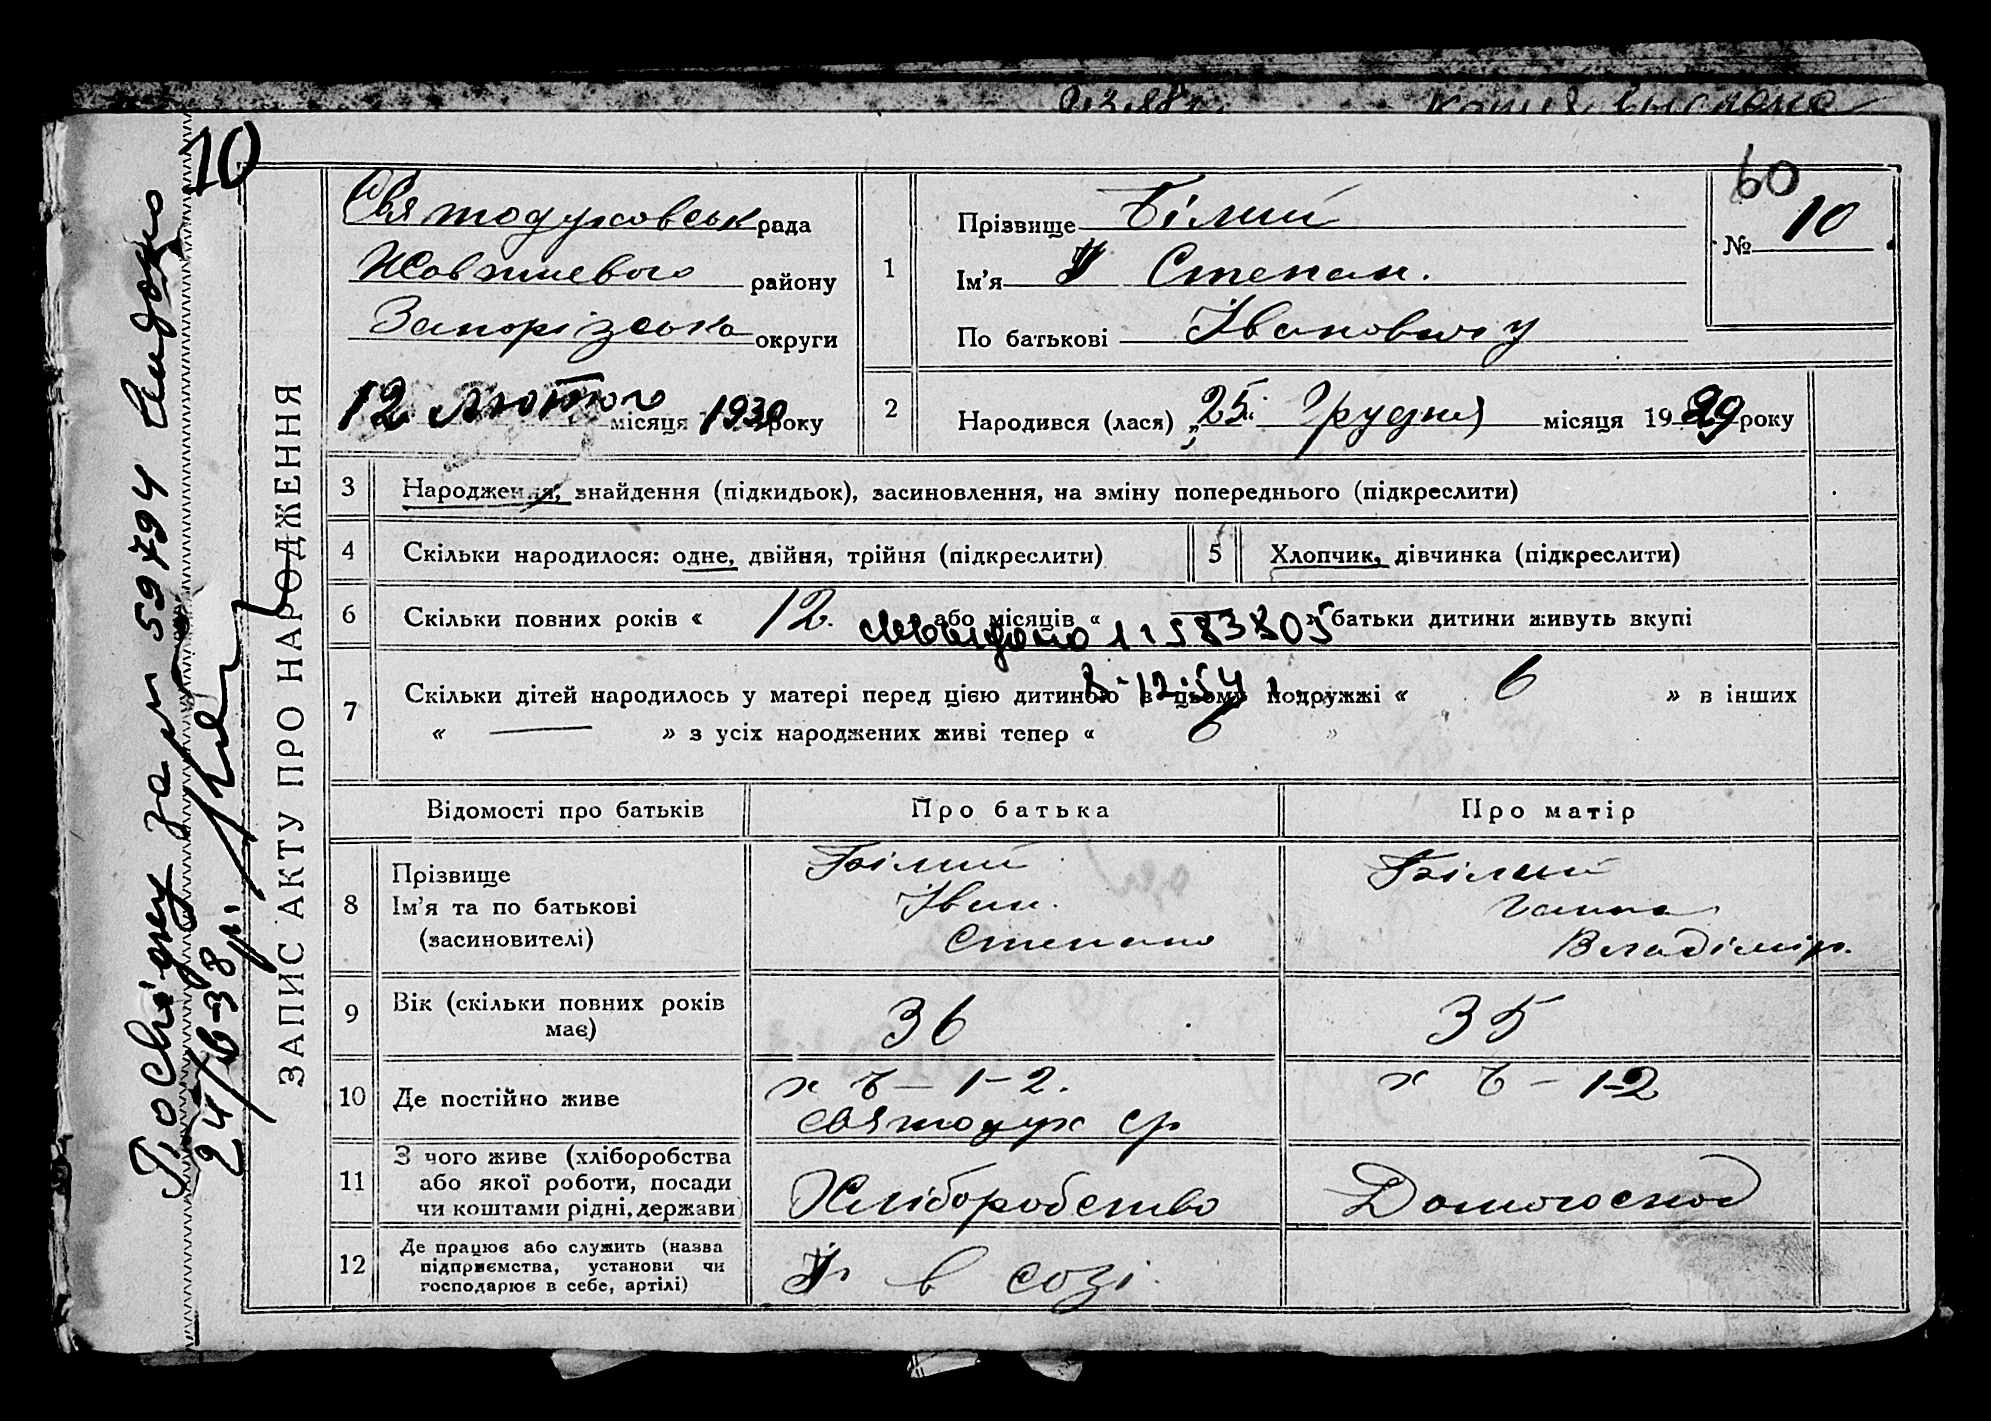 копия выслана
10
60
Святодуховськ рада
Жовтневого району
Запорізська округи
12 лютого місяця 1930 року
1
Прізвище Білий
Ім'я Степан.
По батькові Івановичу
№ 10
2
Народився (лася) „25" Грудня місяця 1929 року
ЗАПИС АКТУ ПРО НАРОДЖЕННЯ
3 Народження, знайдення (підкидьок), засиновлення, на зміну попереднього (підкреслити)
4 Скільки народилося: одне, двійня, трійня (підкреслити)
5 Хлопчик, дівчинка (підкреслити)
6 Скільки повних років « 12. або місяців « — » батьки дитини живуть вкупі
11583805
8-12-54
7 Скільки дітей народилось у матері перед цією дитиною в цьому подружжі « 6 » в інших
« — » з усіх народжених живі тепер « 6 »
Відомості про батьків Про батька Про матір
8 Прізвище
Ім'я та по батькові
(засиновителі)
Білий
Іван.
Степано
Білий
Ганна
Владімір.
9 Вік (скільки повних років
має)
36
35
10 Де постійно живе
х Б – 1-2.
святодух ср
х Б – 1-2
11 З чого живе (хліборобства
або якої роботи, посади
чи коштами рідні, держави)
Хліборобство
Домогоспод
12 Де працює або служить (назва
підприємства, установи чи
господарює в себе, артілі)
в созі.
Посвідку за № 59794 видано
24/VI-38 р.